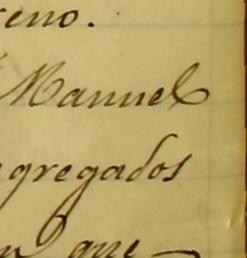 reno.
Manuel
agregados
que